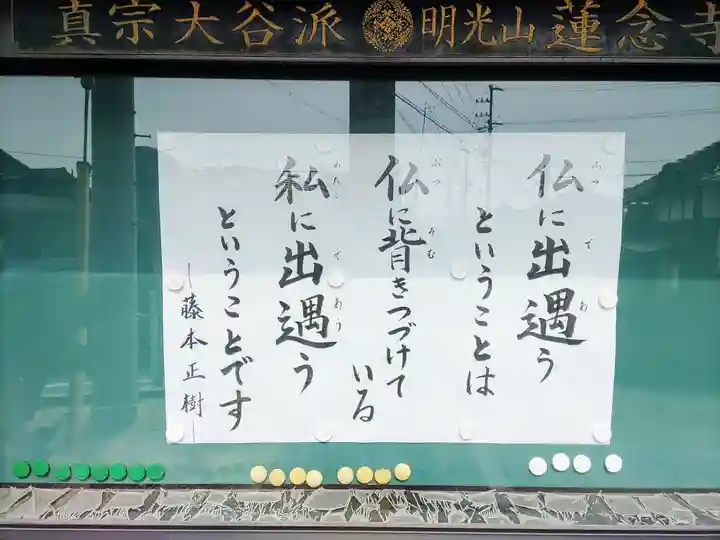 真宗大谷派 明光山 蓮念寺
仏に出遇う
ということは
仏に背きつづけて
いる
私に出遇う
ということです
—藤本正樹—